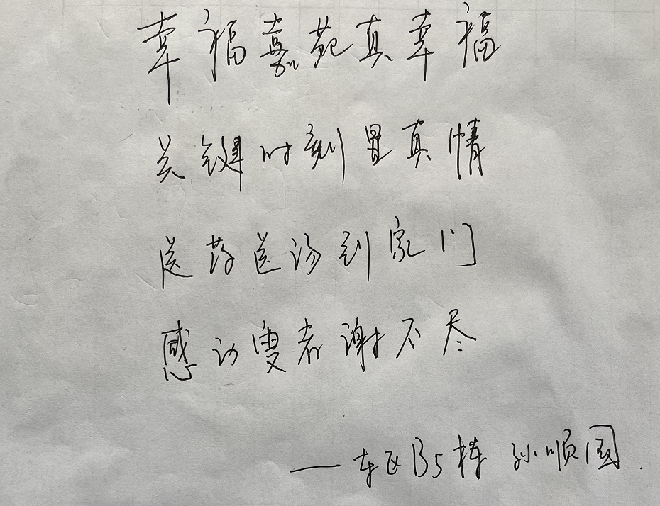 幸福嘉苑真幸福
关键时刻显真情
送药送汤到家门
感动患者谢不尽
——东区B5栋 孙顺国